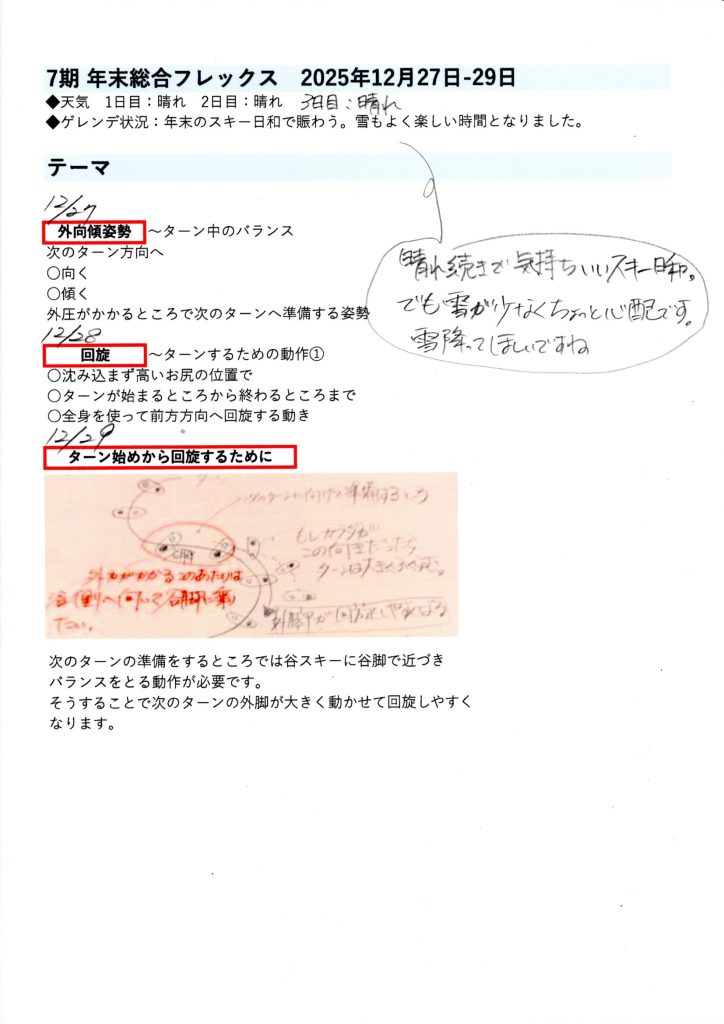 7期 年末総合フレックス 2025年12月27日-29日
◆天気 1日目：晴れ 2日目：晴れ 3日目：晴れ
◆ゲレンデ状況：年末のスキー日和で賑わう。雪もよく楽しい時間となりました。
テーマ
12/27
外向傾姿勢 ～ターン中のバランス
次のターン方向へ
〇向く
〇傾く
外圧がかかるところで次のターンへ準備する姿勢
晴れ続きで気持ちいいスキー日和。
でも雪が少なくちょっと心配です。
雪降ってほしいですね
12/28
回旋 ～ターンするための動作①
〇沈み込まず高いお尻の位置で
〇ターンが始まるところから終わるところまで
〇全身を使って前方方向へ回旋する動き
12/29
ターン始めから回旋するために
次のターンに向けて準備するところ
もしカラダが
この向きだったら
外力がかかるこのあたりは
たい。
次のターンの準備をするところでは谷スキーに谷脚で近づき
バランスをとる動作が必要です。
そうすることで次のターンの外脚が大きく動かせて回旋しやすく
なります。